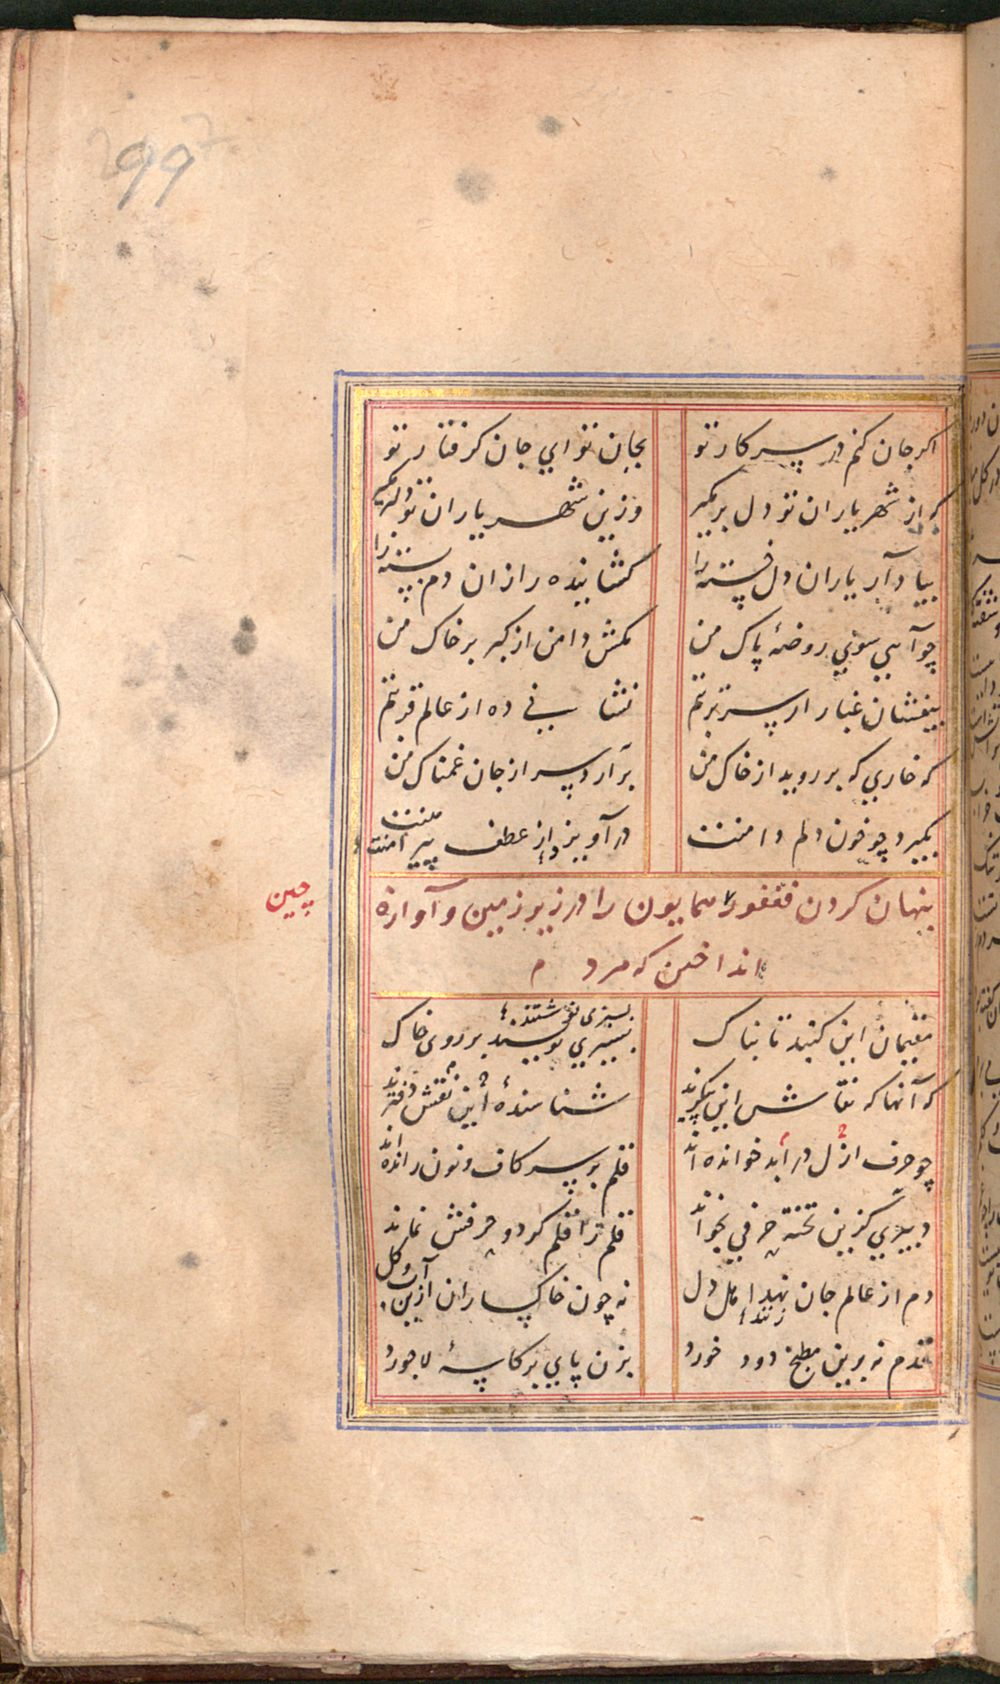 299
اگر جان کنم در سر کار تو بجان تو ای جان گرفتار تو
که از شهریاران تو دل برمگیر وزین شهر یاران تو دل برمگیر
بیاد آر یاران دل خسته را گشاینده راز ان دم بسته را
چو آیی سوی روضهٔ پاک من مکش دامن از کبر بر خاک من
بیفشان غبار از سر تربتم نشانی ده از عالم قربتم
که خاری که بر روید از خاک من برآرد سر از جان غمناک من
بگیرد چو خون دلم دامنت در آویزد از عطف پیرامنت
پنهان کردن فغفور همایون را در زیر زمین و آوازه
چین
انداختن که مرد
مقیمان این گنبد تابناک بسبزی نویسند بر روی خاک
بسبزی نوشتند
که آنها که نقاش این پیکرند شناسندهٔ این نقش دفترند
چو حرف ازل در ابد خوانده اند قلم بر سر کاف و نون رانده اند
دبیری کزین تخته حرفی بخواند قلم را قلم کرد و حرفش نماند
دم از عالم جان زند اهل دل نه چون خاکساران ازین آب و گل
قدم نه برین مطبخ دود خورد بزن پای بر کاسهٔ لاجورد